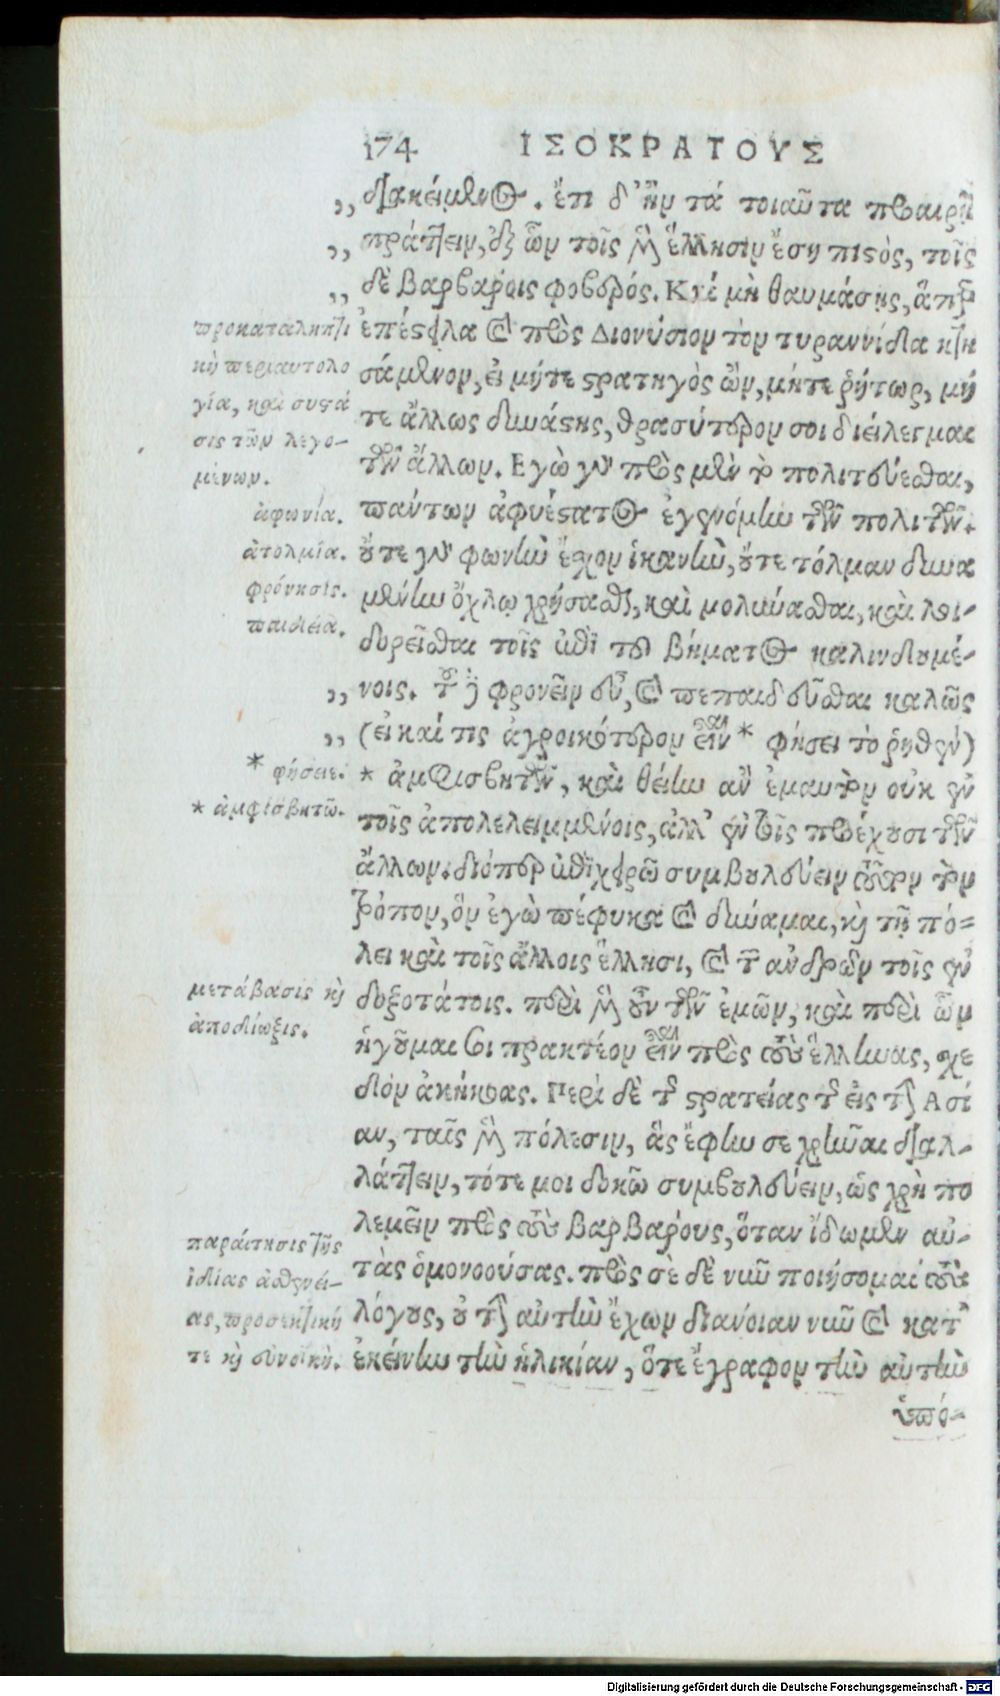 174 ΙΣΟΚΡΑΤΟΥΣ
,, διακείμενος. ἔτι δ' ἢν τὰ τοιαῦτα προαιρῇ
,, πράττειν, ἐξ ὧν τοῖς μὲν ἕλλησιν ἔσῃ πιστὸς, τοῖς
,, δὲ βαρβάροις φοβερός. Καὶ μὴ θαυμάσῃς, ἅπερ
ἐπέστειλα καὶ πρὸς Διονύσιον τὸν τυραννίδα κτη
σάμενον, εἰ μήτε στρατηγὸς ὢν, μήτε ῥήτωρ, μή
τε ἄλλως δυνάστης, θρασύτερόν σοι διείλεγμαι
τῶν ἄλλων. Εγὼ γὰρ πρὸς μὲν τὸ πολιτεύεσθαι,
πάντων ἀφυέστατος ἐγενόμην τῶν πολιτῶν.
οὔτε γὰρ φωνὴν ἔσχον ἱκανὴν, οὔτε τόλμαν δυνα
μένην ὄχλῳ χρῆσθαι, καὶ μολύνεσθαι, καὶ λοι-
δορεῖσθαι τοῖς ἐπὶ τοῦ βήματος καλινδουμέ-
,, νοις. τοῦ δὲ φρονεῖν εὖ, καὶ πεπαιδεῦσθαι καλῶς
,, (εἰ καί τις ἀγροικότερον εἶναι * φήσει τὸ ῥηθὲν)
* ἀμφισβητῶν, καὶ θείην ἂν ἐμαυτὸν οὐκ ἐν
τοῖς ἀπολελειμμένοις, ἀλλ' ἐν τοῖς προέχουσι τῶν
ἄλλων. διόπερ ἐπιχειρῶ συμβουλεύειν τοῦτον τὸν
τρόπον, ὃν ἐγὼ πέφυκα καὶ δύναμαι, καὶ τῇ πό-
λει καὶ τοῖς ἄλλοις ἕλλησι, καὶ τῶν ἀνδρῶν τοῖς ἐν
δοξοτάτοις. περὶ μὲν οὖν τῶν ἐμῶν, καὶ περὶ ὧν
ἡγοῦμαί σοι πρακτέον εἶναι πρὸς τοὺς ἕλληνας, σχε
δὸν ἀκήκοας. Περὶ δὲ τῆς στρατείας τῆς εἰς τὴν Ασί
αν, ταῖς μὲν πόλεσιν, ἃς ἔφην σε χρῆναι διαλ-
λάττειν, τότε μοι δοκῶ συμβουλεύειν, ὡς χρὴ πο
λεμεῖν πρὸς τοὺς βαρβάρους, ὅταν ἴδωμεν αὐ-
τὰς ὁμονοούσας. πρὸς σὲ δὲ νῦν ποιήσομαι τοὺς
λόγους, οὐ τὴν αὐτὴν ἔχων διάνοιαν νῦν καὶ κατ'
ἐκείνην τὴν ἡλικίαν, ὅτε ἔγραφον τὴν αὐτὴν
ὑπό-
προκατάληψι
κὴ περιαυτολο
γία, καὶ συστά
σις τῶν λεγο-
μένων.
ἀφωνία.
ἀτολμία.
φρόνησις.
παιδεία.
* φήσειε.
* ἀμφισβητῶ.
μετάβασις κὴ
ἀποδίωξις.
παραίτησις τῆς
ἰδίας ἀσθενεί-
ας, προσεκτική
τε κὴ εὐνοϊκή.
Digitalisierung gefördert durch die Deutsche Forschungsgemeinschaft - DFG